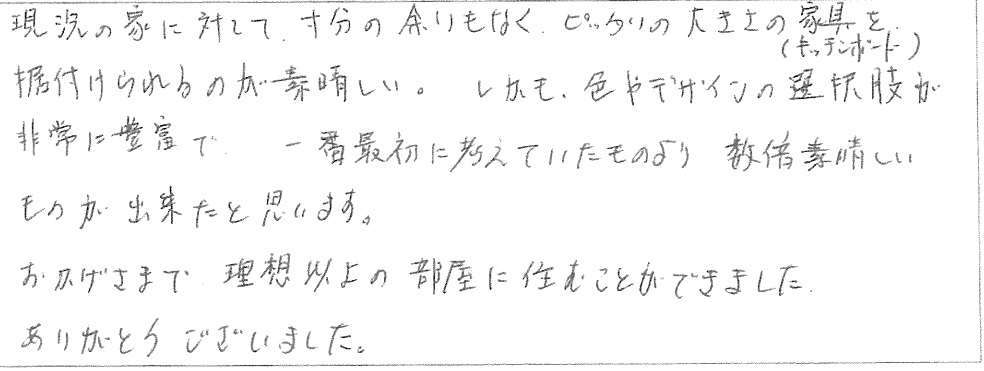 現況の家に対して、寸分の余りもなく、ピッタリの大きさの家具を
(キッチンボード)
据付けられるのが素晴しい。しかも、色やデザインの選択肢が
非常に豊富で 一番最初に考えていたものより 数倍素晴しい
ものが出来たと思います。
おかげさまで 理想以上の部屋に住むことができました。
ありがとうございました。